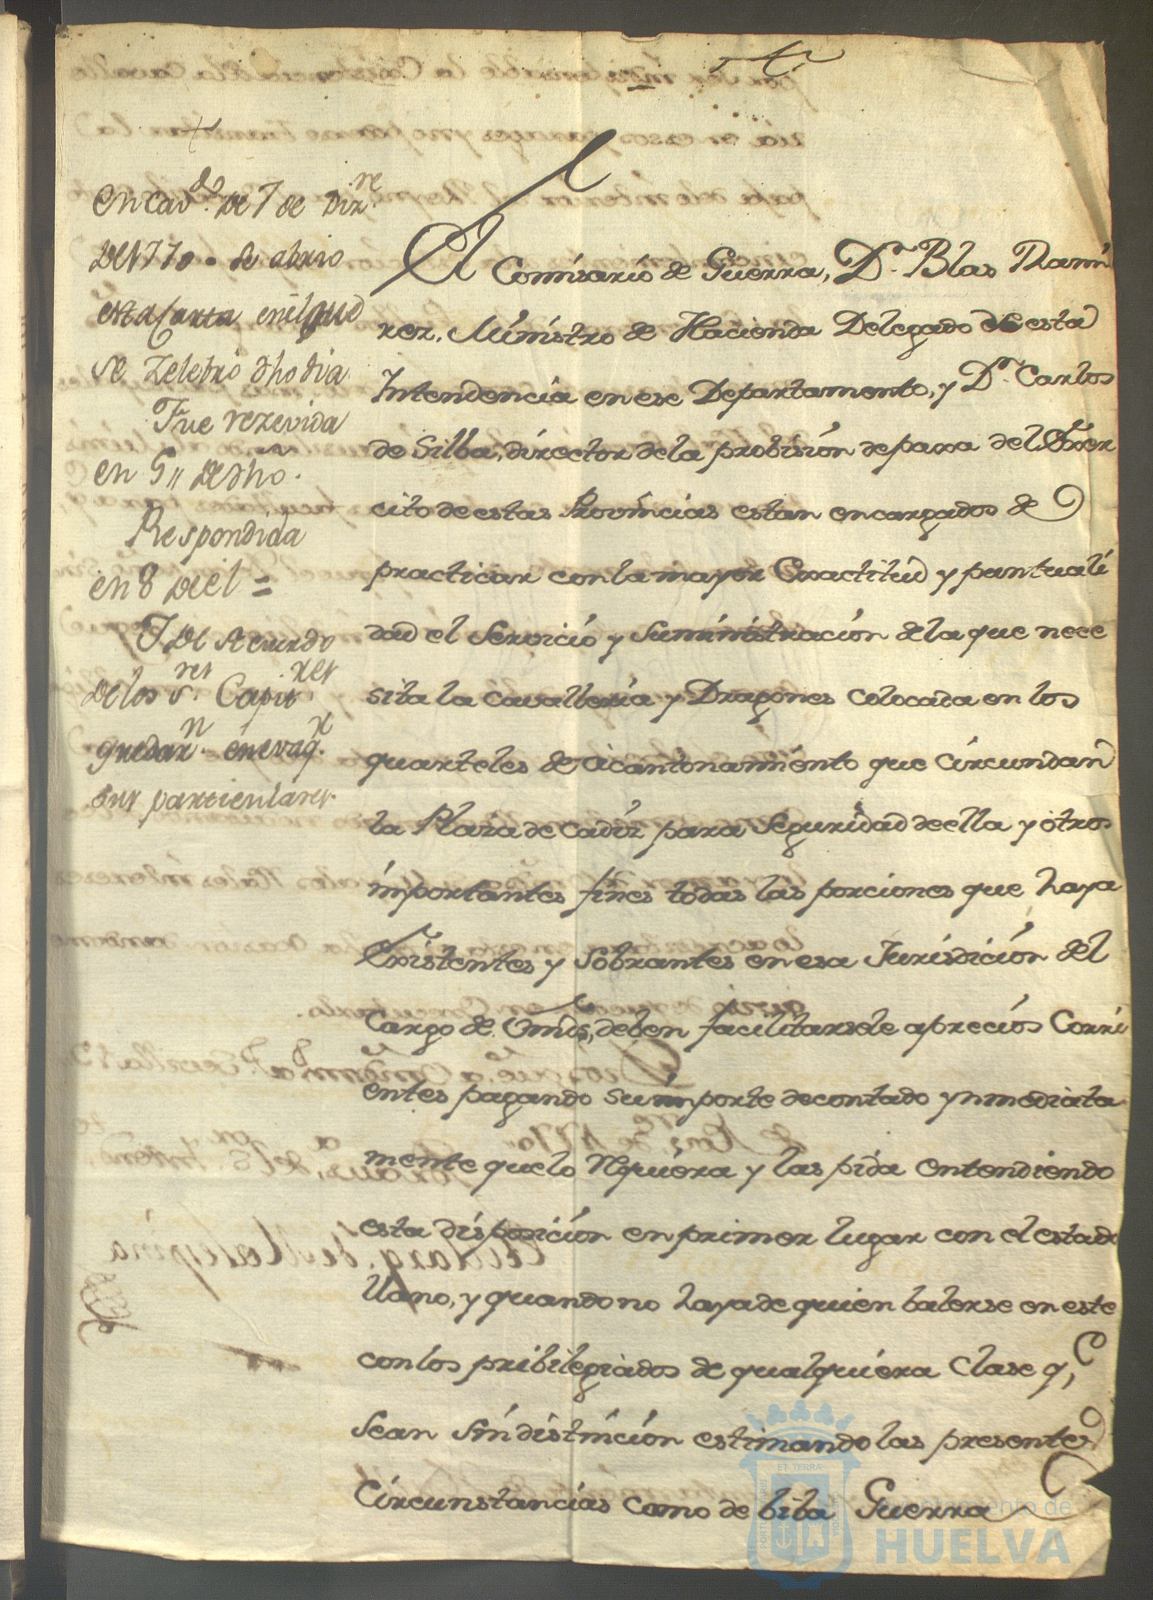 En cav.do de 7 de Diz.re
de 1770. se abrio
esta Carta en el que
se Zelebró dho dia
Fue rezevida
en 5,, de dho.
Respondida
en 8 de el =
I de Acuerdo
de los S.res Capit.res
quedar.n en evaq.
sus particulares.
El Comisario de Guerra, D.n Blas Rami
rez, Ministro de Hacienda Delegado de esta
Intendencia en ese Departamento, y D.n Carlos
de Silba, director de la probision de paxa del Exer
cito de estas Provincias estan encargados de
practicar con la mayor Exactitud y puntuali
dad el Servicio y Suministracion de la que nece
sita la Cavalleria y Dragones colocada en los
quarteles de acantonamiento que Circundan
la Plaza de Cadiz para Seguridad de ella y otros
importantes fines todas las porciones que haya
Existentes y Sobrantes en esa Jurisdicion del
Cargo de Vmds, deben facilitarsele a precios Corri
entes pagando su importe de contado ynmediata
mente que lo Requiera y las pida entendiendo
esta disposicion en primer lugar con el estado
llano, y quando no haya de quien balerse en este
con los pribilegiados de qualquiera Clase q.e
Sean sin distincion estimando las presentes
Circunstancias como de biba Guerra
Ayuntamiento de
HUELVA